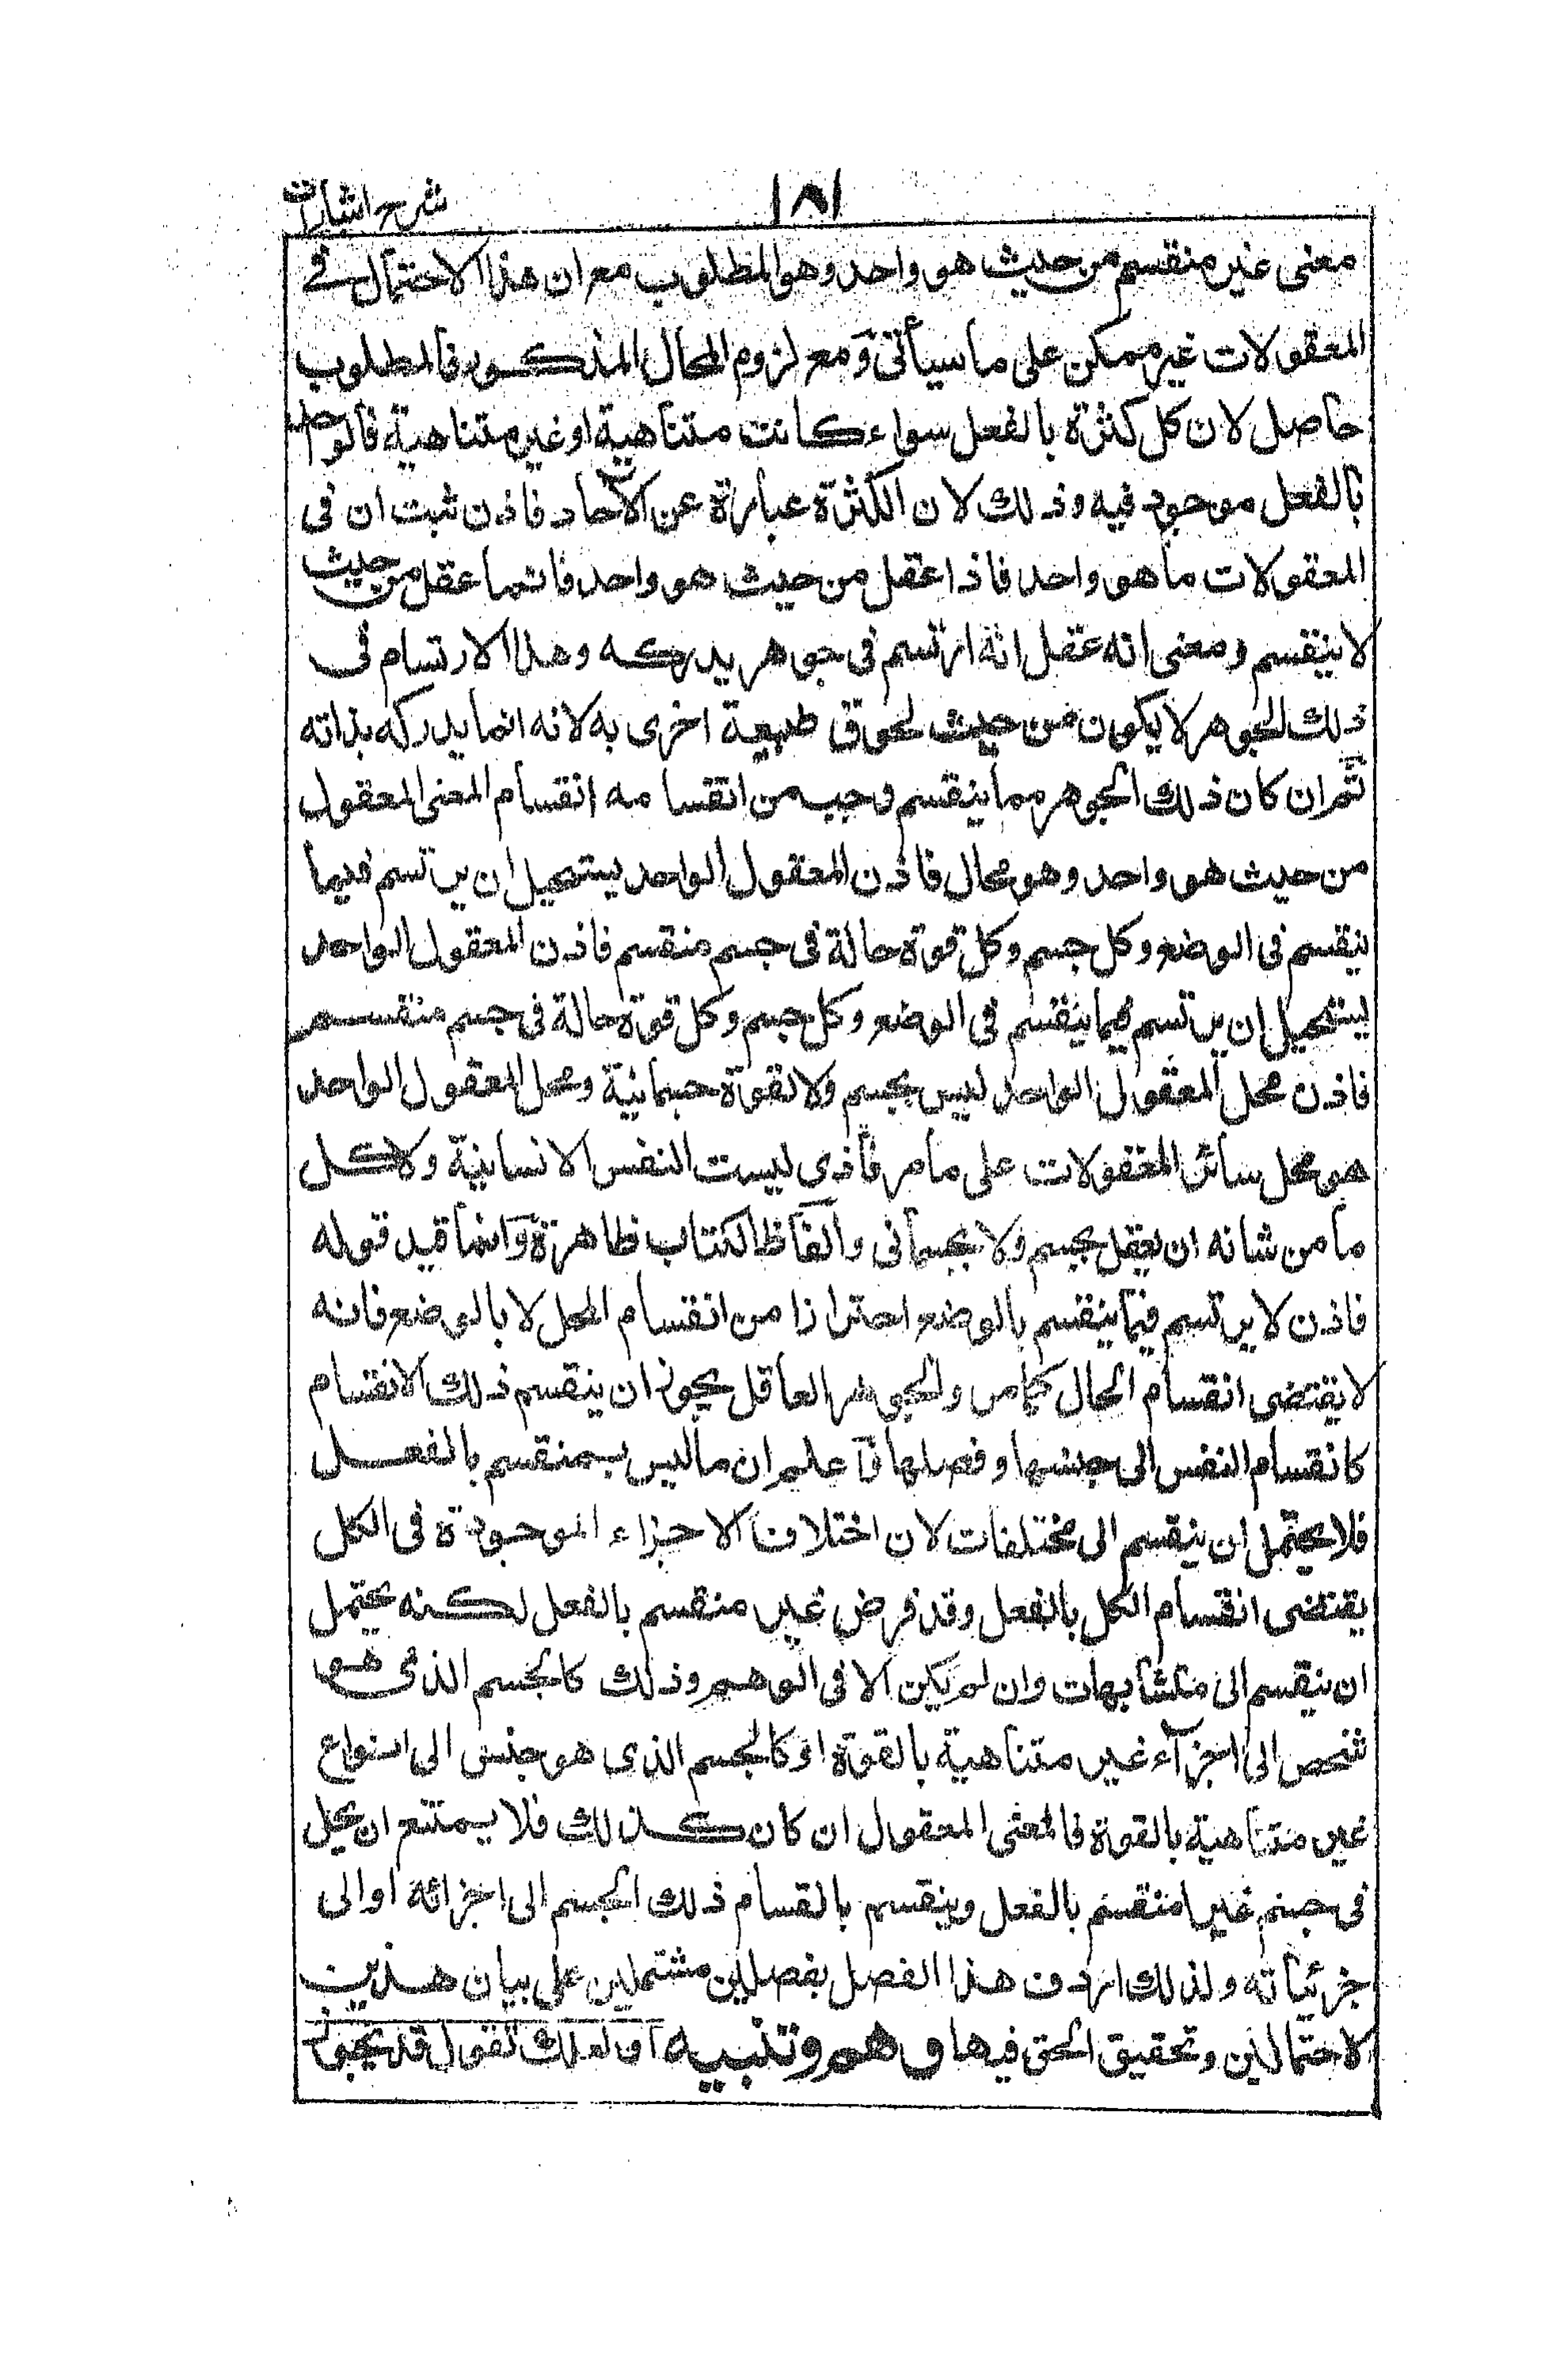 شرح اشارات
١٨١
معنى غير منقسم من حيث هو واحد وهو المطلوب مع ان هذا الاحتمال فے
المعقولات غير ممكن على ما سيأتى و مع لزوم المحال المذكور فالمطلوب
حاصل لان كل كثرة بالفعل سواء كانت متناهية او غير متناهية فالواحد
بالفعل موجود فيه وذلك لان الكثرة عبارة عن الآحاد فاذن ثبت ان فى
المعقولات ما هو واحد فاذا عقل من حيث هو واحد فانما عقل من حيث
لا ينقسم ومعنى انه عقل انه ارتسم فى جوهر يدركه وهذا الارتسام فى
ذلك الجوهر لا يكون من حيث لحوق طبيعة اخرى به لانه انما يدركه بذاته
ثم ان كان ذلك الجوهر مما ينقسم وجب من انقسامه انقسام المعنى المعقول
من حيث هو واحد وهو محال فاذن المعقول الواحد يستحيل ان يرتسم فيما
ينقسم فى الوضع وكل جسم وكل قوة حالة فى جسم منقسم فاذن المعقول الواحد
يستحيل ان يرتسم فيما ينقسم فى الوضع وكل جسم وكل قوة حالة فى جسم منقسم
فاذن محل المعقول الواحد ليس بجسم ولا بقوة جسمانية ومحل المعقول الواحد
هو محل سائر المعقولات على ما مر فاذى ليست النفس الانسانية ولا كل
ما من شانه ان يعقل بجسم ولا بجسمانى والفاظ الكتاب ظاهرة وانما قيد قوله
فاذن لا يرتسم فيما ينقسم بالوضع احترازا من انقسام المحل لا بالوضع فانه
لا يقتضى انقسام الحال كما مر والجوهر العاقل يجوز ان ينقسم ذلك الانقسام
كانقسام النفس الى جنسها وفصلها و اعلم ان ما ليس بمنقسم بالفعل
فلا يحتمل ان ينقسم الى مختلفات لان اختلاف الاجزاء الموجودة فى الكل
يقتضى انقسام الكل بالفعل وقد فرض غير منقسم بالفعل لكنه يحتمل
ان ينقسم الى متشابهات وان لم يكن الا فى الوهم وذلك كالجسم الذى هو
شخص الى اجزاء غير متناهية بالقوة او كالجسم الذى هو جنس الى انواع
غير متناهية بالقوة فالمعنى المعقول ان كان كذلك فلا يمتنع ان يحل
فى جسم غير منقسم بالفعل وينقسم بانقسام ذلك الجسم الى اجزائه او الى
جزئياته ولذلك اردف هذا الفصل بفصلين مشتملين على بيان هذين
لاحتمالين وتحقيق الحق فيها وهم وتنبيه او لعلك تقول قد يجوز